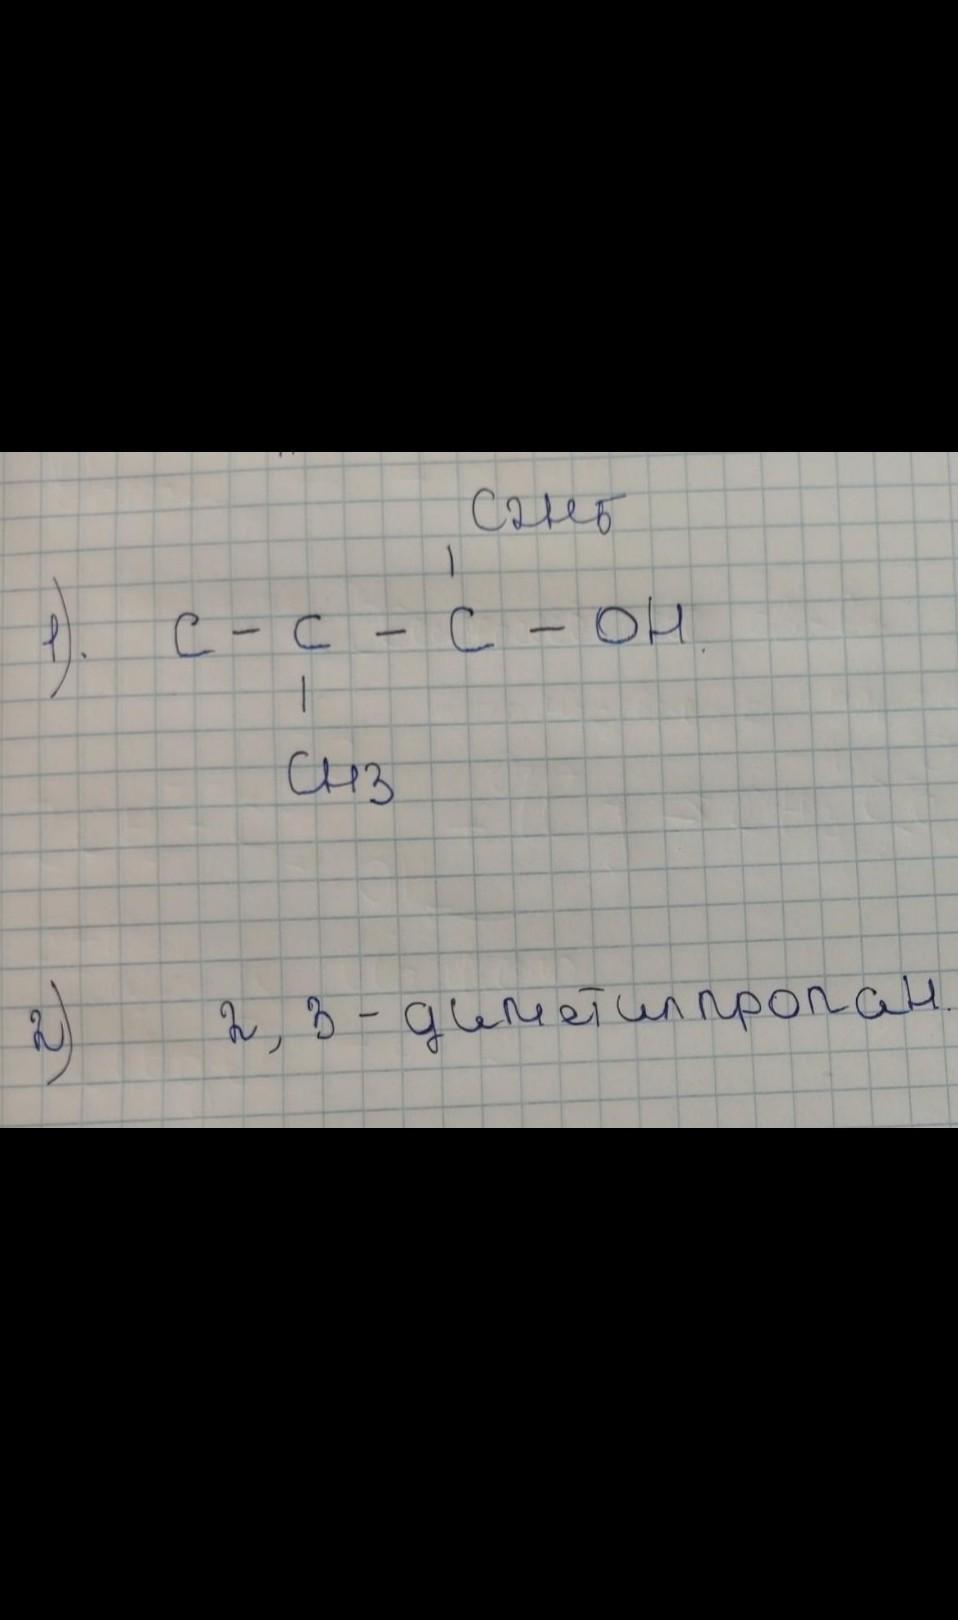 C2H5
1). C - C - C - OH.
CH3
2) 2, 3 - диметилпропан.